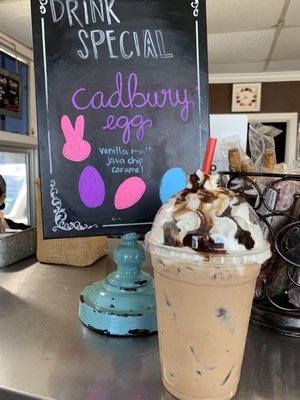 DRINK
SPECIAL
cadbury
egg
vanilla malt
java chip
caramel!